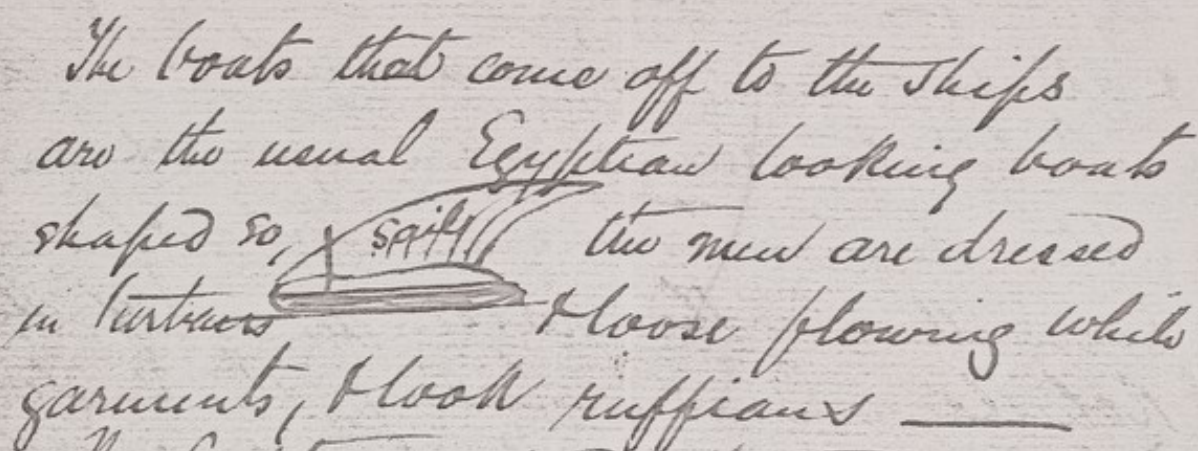 The boats that come off to the ships
are the usual Egyptian looking boats
shaped so, sail the men are dressed
in turbans & loose flowing white
garments, & look ruffians